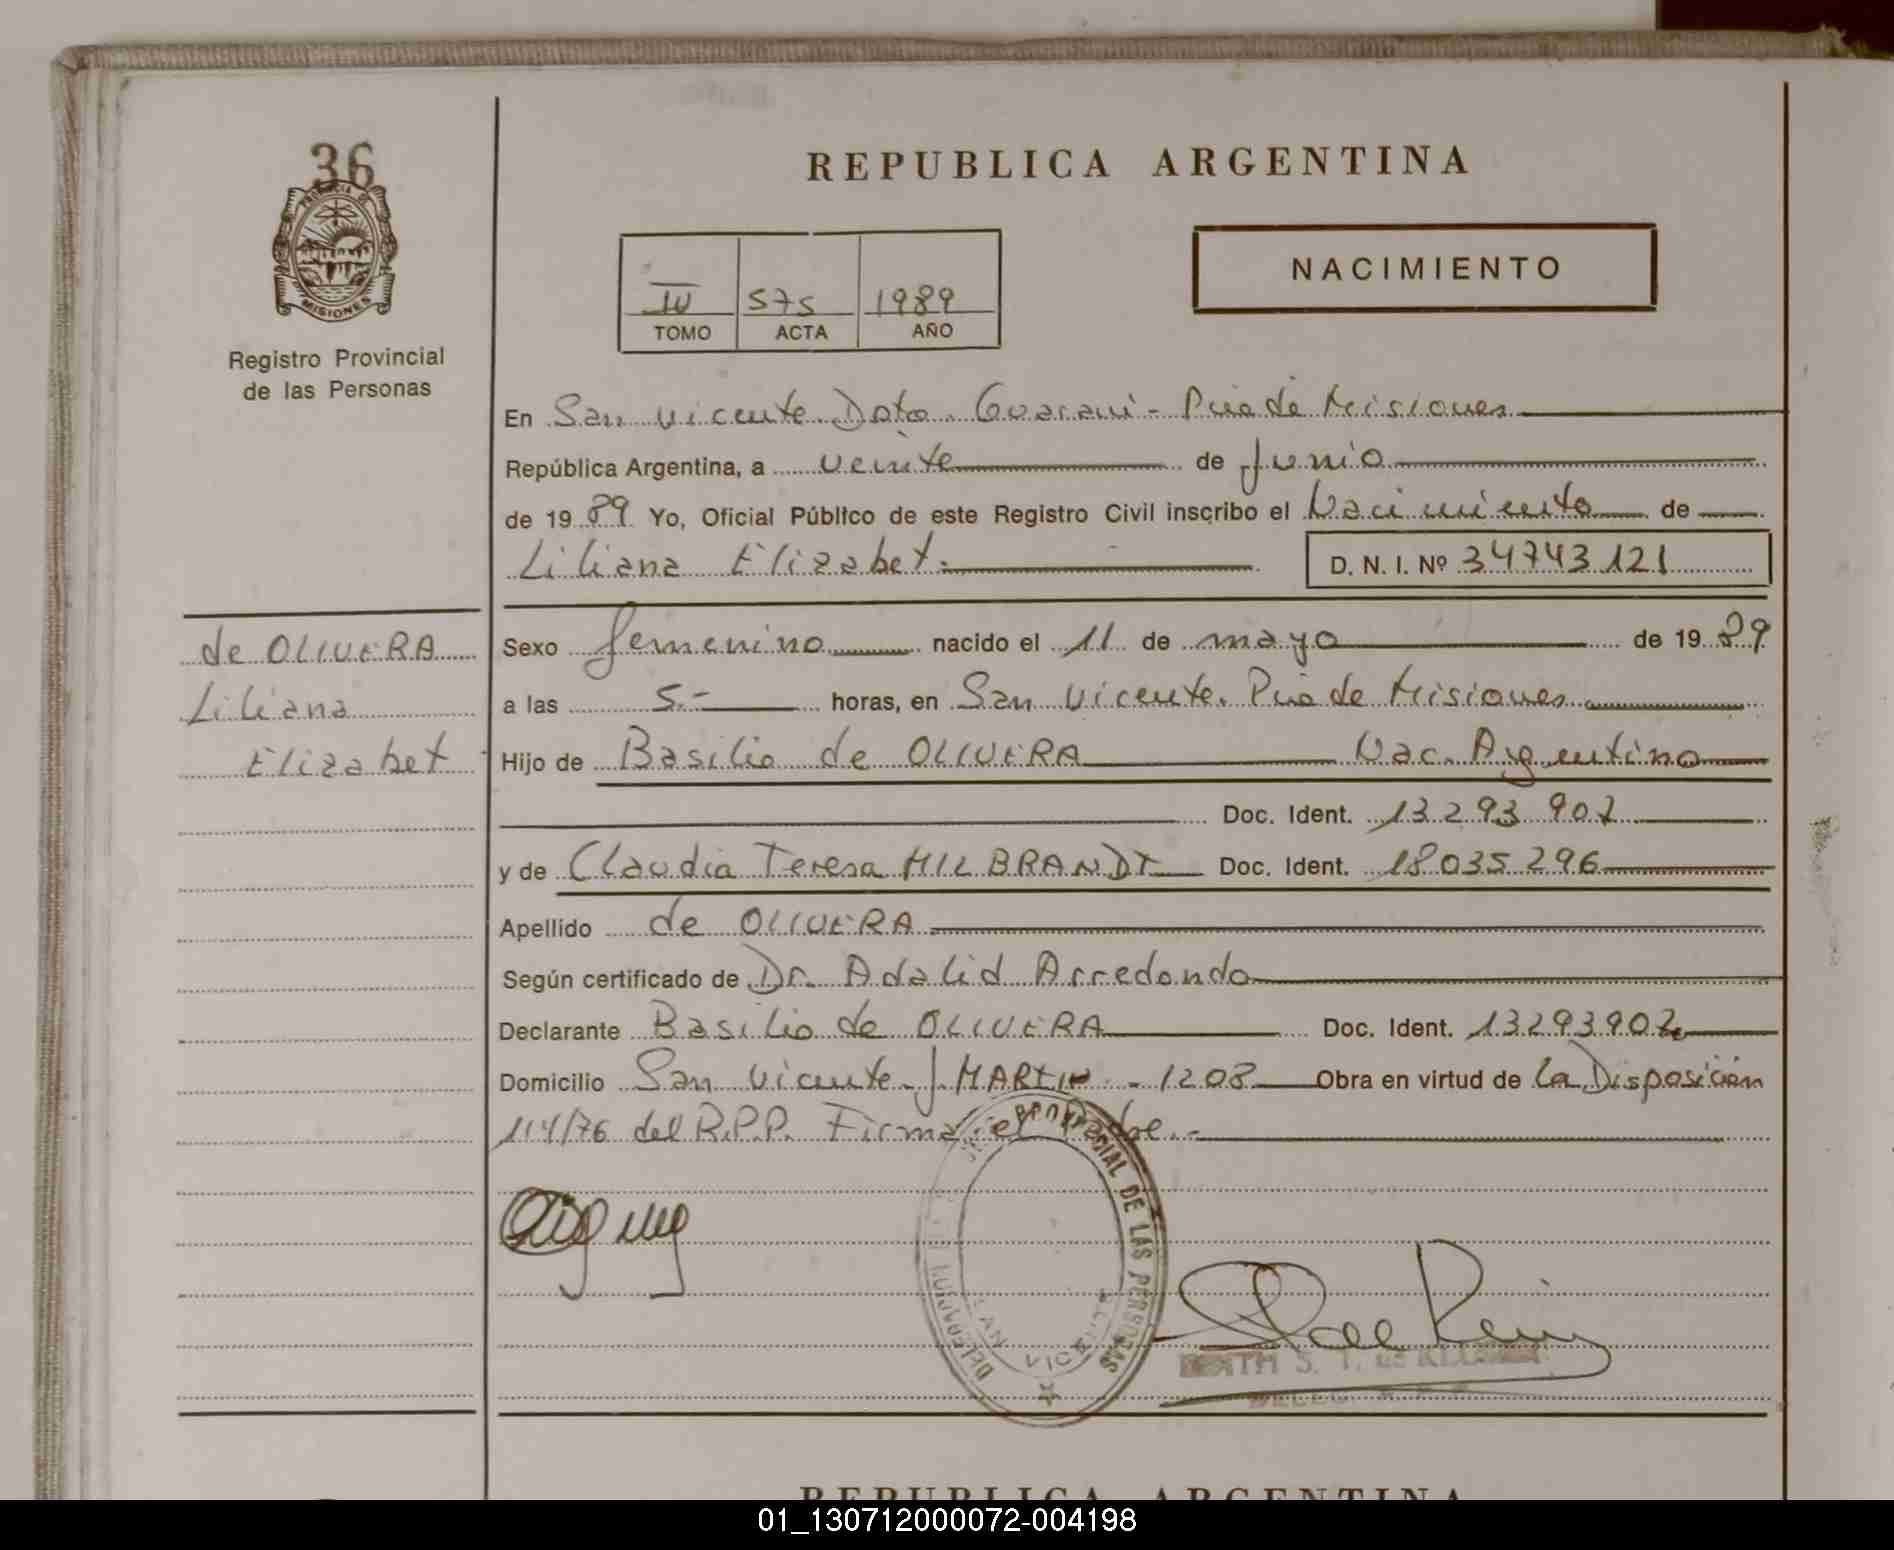 36
PROVINCIA DE
MISIONES
Registro Provincial
de las Personas
REPUBLICA ARGENTINA
NACIMIENTO
IV 575 1989
TOMO ACTA AÑO
En San Vicente Dpto. Guaraní - Pcia de Misiones
República Argentina, a veinte de Junio
de 1989 Yo, Oficial Público de este Registro Civil inscribo el Nacimiento de
Liliana Elizabet.
D. N. I. Nº 34743121
de OLIVERA
Liliana
Elizabet
Sexo femenino nacido el 11 de mayo de 1989
a las 5.- horas, en San Vicente. Pcia de Misiones
Hijo de Basilio de OLIVERA Nac. Argentino
Doc. Ident. 13293907
y de Claudia Teresa MILBRANDT Doc. Ident. 18035296
Apellido de OLIVERA
Según certificado de Dr. Adalid Arredondo
Declarante Basilio de OLIVERA Doc. Ident. 13293907
Domicilio San Vicente J. MARTIN - 1208 Obra en virtud de la Disposición
114/76 del R.P.P. Firma el Padre.-
PROVINCIAL DE LAS PERSONAS
DELEGACION
SAN VICENTE
S. T. de
REPUBLICA ARGENTINA
01_130712000072-004198